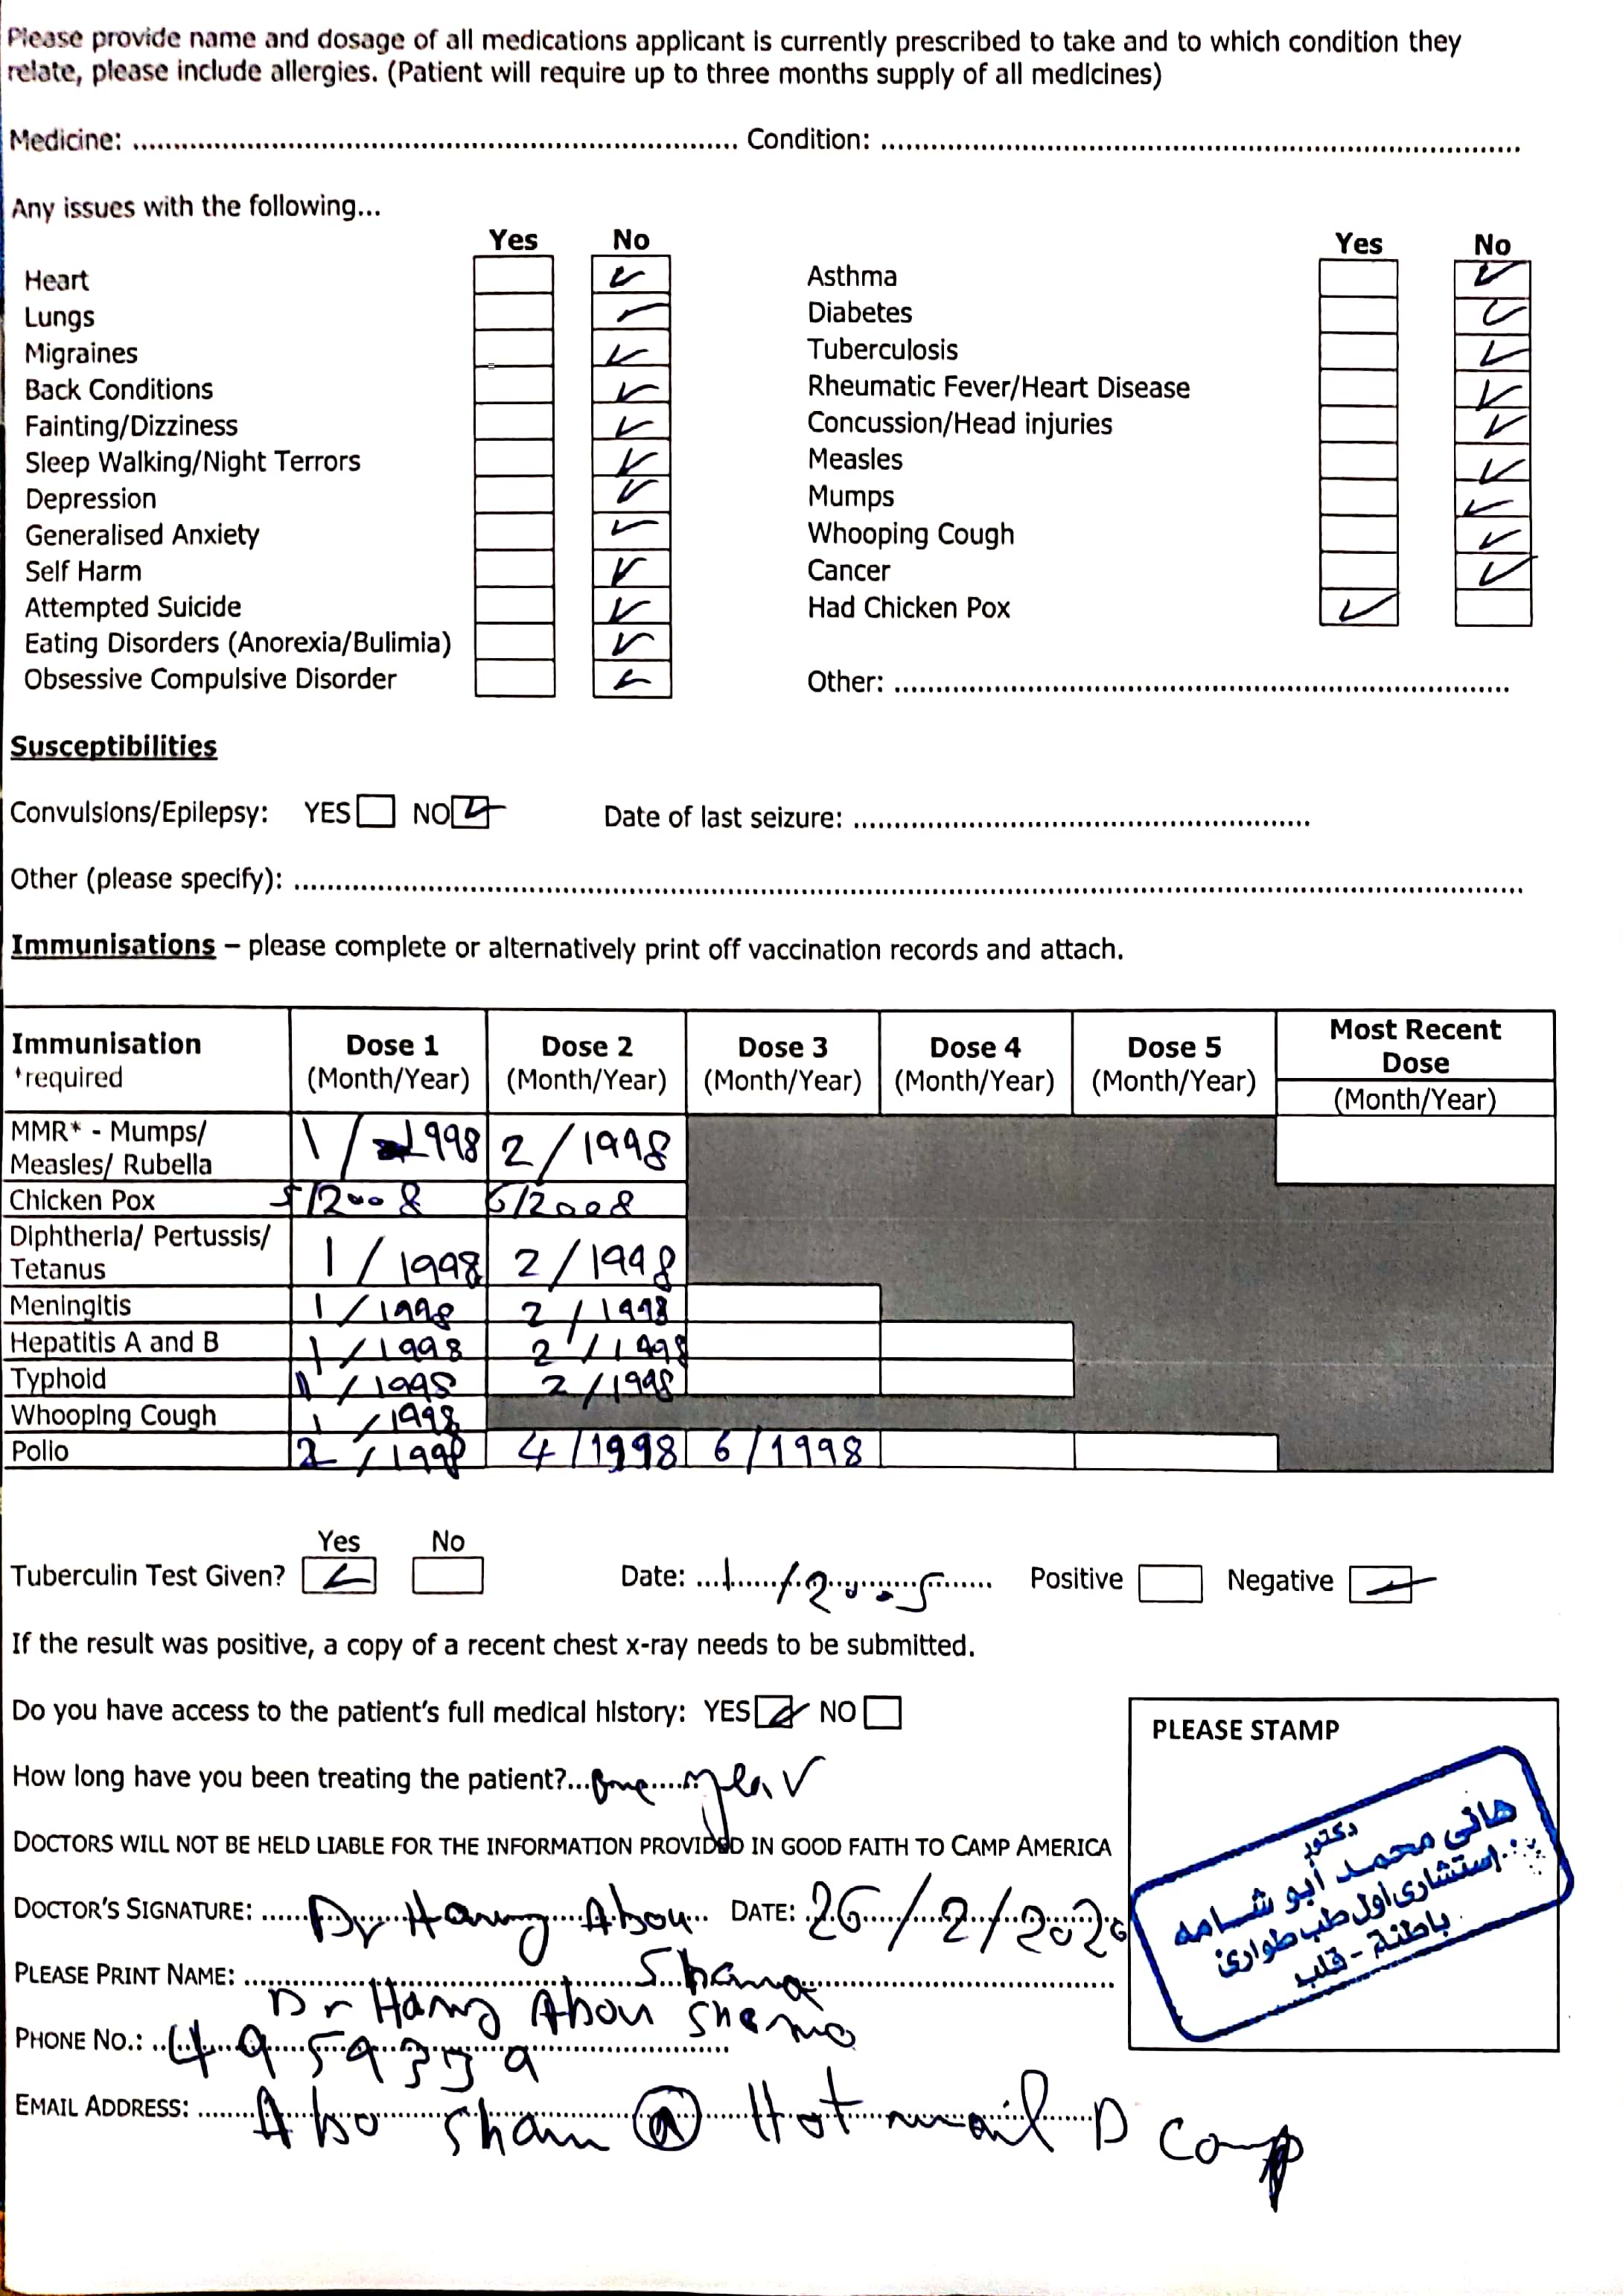 Please provide name and dosage of all medications applicant is currently prescribed to take and to which condition they
relate, please include allergies. (Patient will require up to three months supply of all medicines)
Medicine: ........ Condition: ........
Any issues with the following...
Yes No
Heart ✓
Lungs ✓
Migraines ✓
Back Conditions ✓
Fainting/Dizziness ✓
Sleep Walking/Night Terrors ✓
Depression ✓
Generalised Anxiety ✓
Self Harm ✓
Attempted Suicide ✓
Eating Disorders (Anorexia/Bulimia) ✓
Obsessive Compulsive Disorder ✓
Yes No
Asthma ✓
Diabetes ✓
Tuberculosis ✓
Rheumatic Fever/Heart Disease ✓
Concussion/Head injuries ✓
Measles ✓
Mumps ✓
Whooping Cough ✓
Cancer ✓
Had Chicken Pox ✓
Other: ........
Susceptibilities
Convulsions/Epilepsy: YES NO ✓ Date of last seizure: ........
Other (please specify): ........
Immunisations – please complete or alternatively print off vaccination records and attach.
Immunisation Dose 1 Dose 2 Dose 3 Dose 4 Dose 5 Most Recent Dose
*required (Month/Year) (Month/Year) (Month/Year) (Month/Year) (Month/Year) (Month/Year)
MMR* - Mumps/ Measles/ Rubella 1/1998 2/1998
Chicken Pox 5/2008 6/2008
Diphtheria/ Pertussis/ Tetanus 1/1998 2/1998
Meningitis 1/1998 2/1998
Hepatitis A and B 1/1998 2/1998
Typhoid 1/1998 2/1998
Whooping Cough 1/1998
Polio 2/1998 4/1998 6/1998
Yes No
Tuberculin Test Given? ✓ Date: 1/2005 Positive Negative ✓
If the result was positive, a copy of a recent chest x-ray needs to be submitted.
Do you have access to the patient's full medical history: YES ✓ NO
How long have you been treating the patient? One year
DOCTORS WILL NOT BE HELD LIABLE FOR THE INFORMATION PROVIDED IN GOOD FAITH TO CAMP AMERICA
DOCTOR'S SIGNATURE: Dr Hany Abou Shama DATE: 26/2/2020
PLEASE PRINT NAME: Dr Hany Abou Shama
PHONE NO.: 4959339
EMAIL ADDRESS: Abo sham @ Hotmail D Com
PLEASE STAMP
دكتور
هاني محمد أبو شامه
استشارى أول طب طوارئ
باطنة - قلب